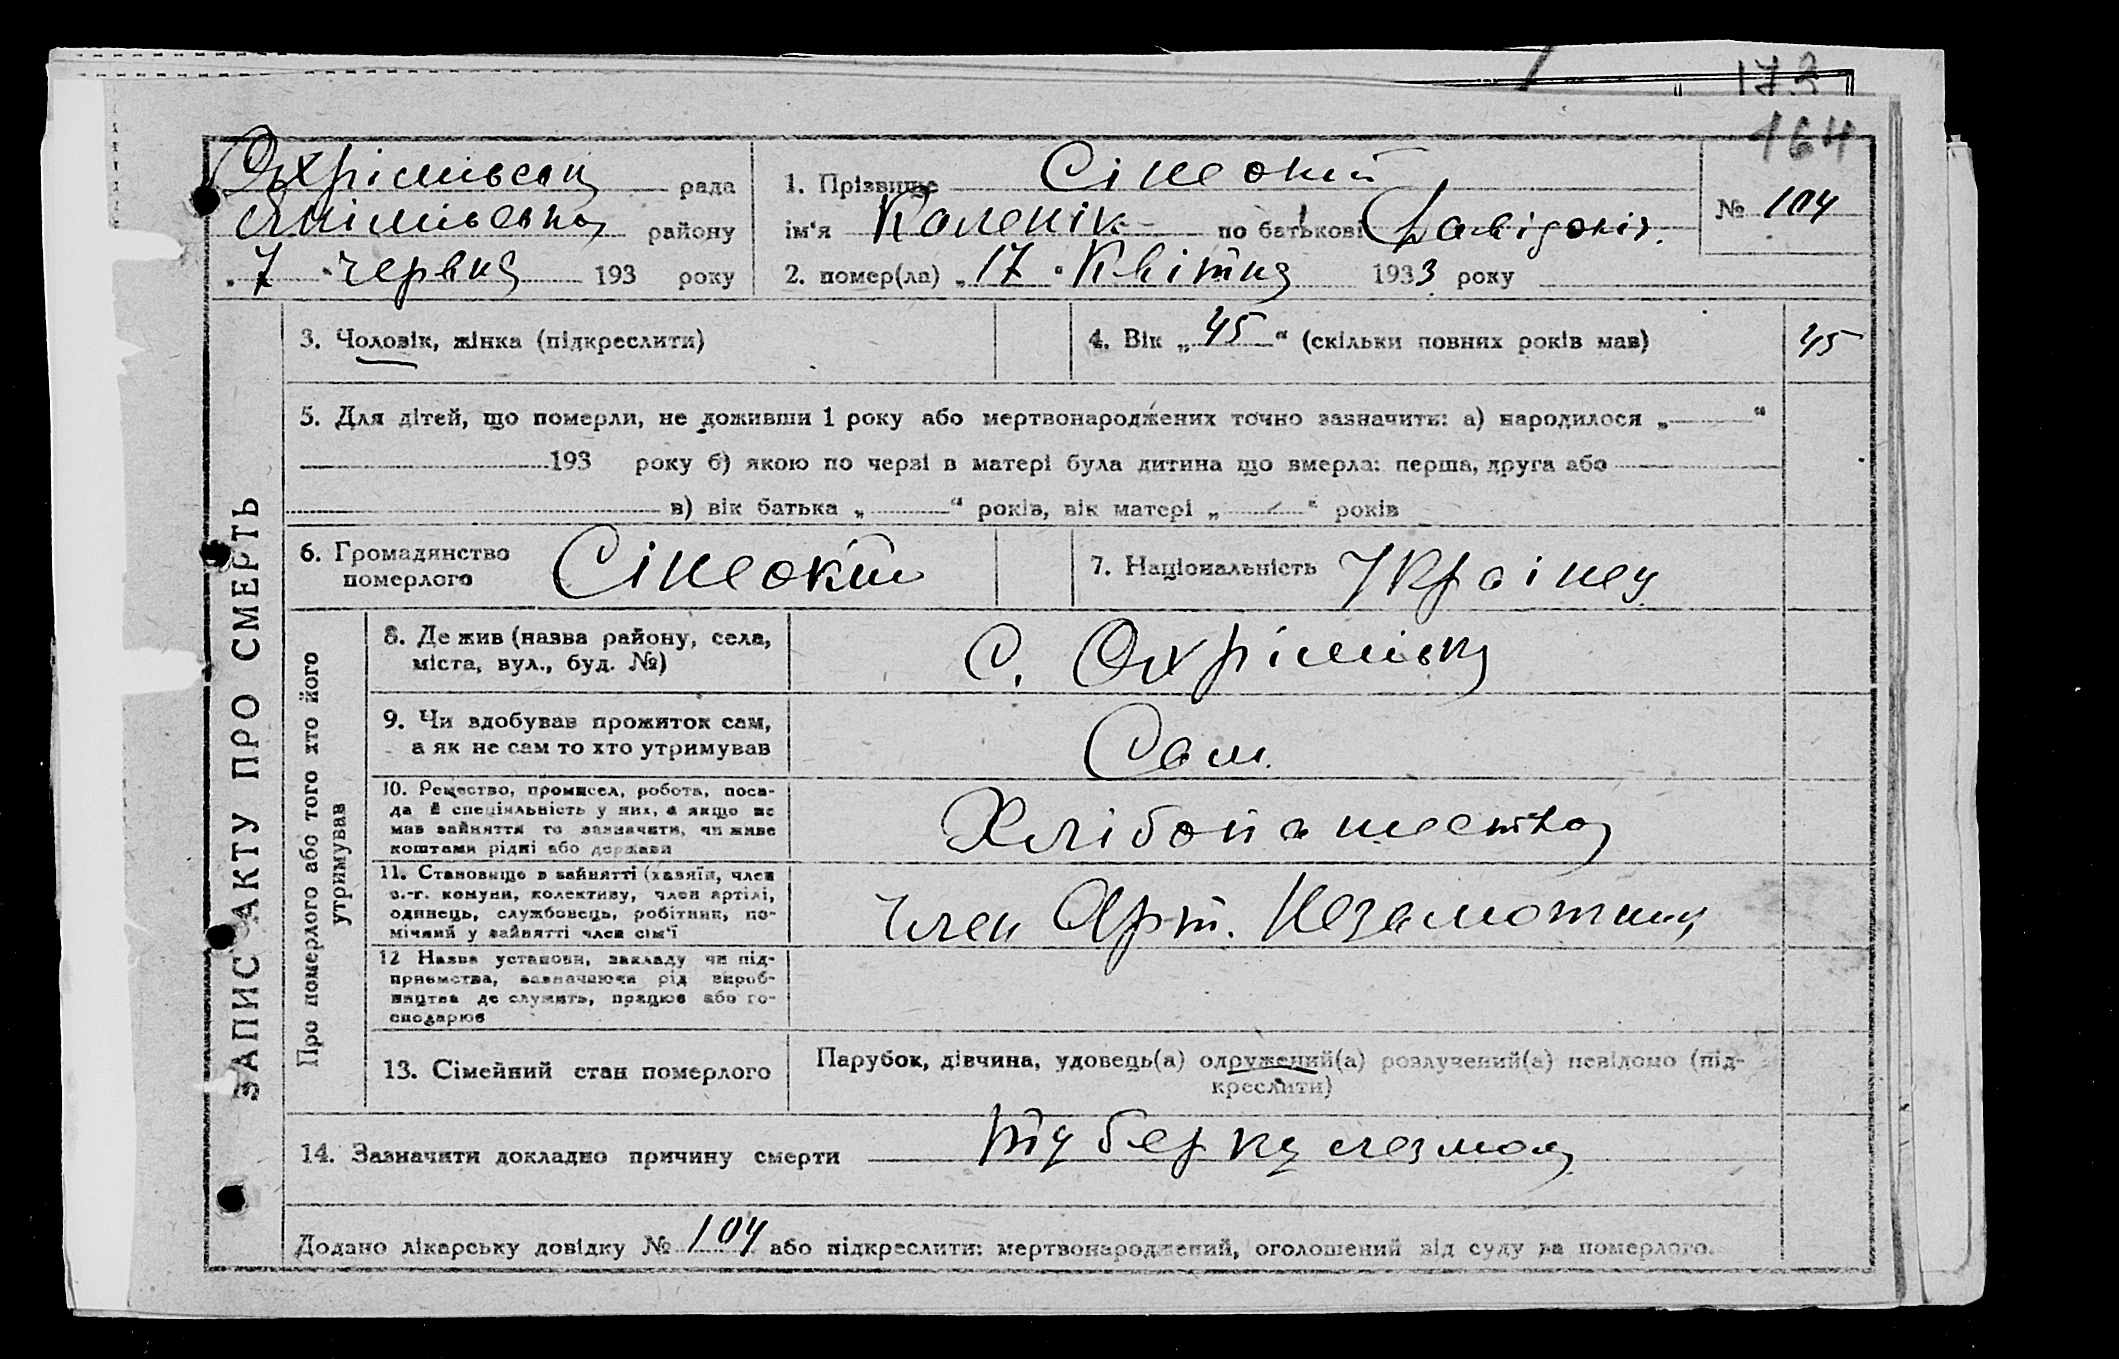 173
164
Охрімівська рада
Якімівського району
„7“ червня 193 року
1. Прізвище Сінеокий
ім'я Каленік по батькові Давідовіч.
2. помер(ла) „17“ Квітня 1933 року
№ 104
ЗАПИС АКТУ ПРО СМЕРТЬ
3. Чоловік, жінка (підкреслити)
4. Вік „45“ (скільки повних років мав)
45
5. Для дітей, що померли, не доживши 1 року або мертвонароджених точно зазначить: а) народилося „ “
193 року б) якою по черзі в матері була дитина що вмерла: перша, друга або
в) вік батька „ “ років, вік матері „ “ років
6. Громадянство
померлого
Сінеокий
7. Національність Украінец
Про померлого або того хто його
утримував
8. Де жив (назва району, села,
міста, вул., буд. №)
С. Охрімівка
9. Чи здобував прожиток сам,
а як не сам то хто утримував
Сам.
10. Ремество, промисел, робота, поса-
да й спеціяльність у них, а якщо не
мав зайняття то зазначити, чи живе
коштами рідні або держави
Хлібопашество
11. Становище в зайнятті (хазяїн, член
с.-г. комуни, колективу, член артілі,
одинець, службовець, робітник, по-
мічний у зайнятті член сім'ї
Член Арт. Незаможник
12 Назва установи, закладу чи під-
приємства, зазначаючи рід вироб-
ництва де служить, працює або го-
сподарює
13. Сімейний стан померлого
Парубок, дівчина, удовець(а) одружений(а) розлучений(а) невідомо (під-
креслити)
14. Зазначити докладно причину смерти
Додано лікарську довідку № 104 або підкреслити: мертвонароджений, оголошений від суду за померлого.